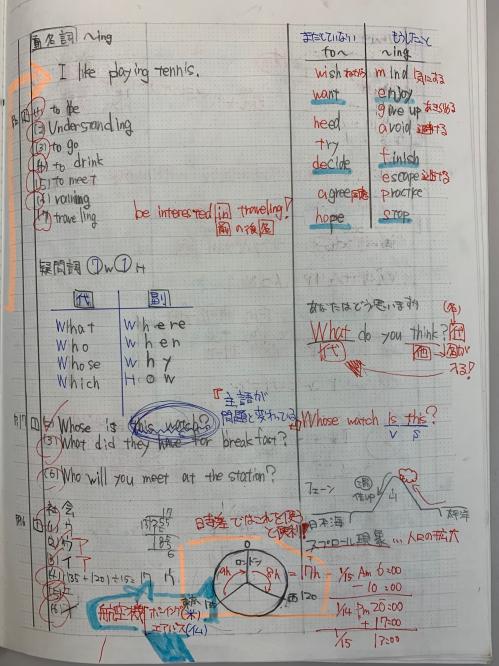 動名詞 ~ing
I like playing tennis.
(1) to be
(2) Understanding
(3) to go
(4) to drink
(5) to meet
(6) raining
(7) traveling
be interested in traveling!
前の後
まだしていない もうしたこと
to~ ~ing
wish mind 気にする
want enjoy
need give up あきらめる
try avoid 避ける
decide finish
agree 同意 escape 逃げる
hope practice
stop
疑問詞 ⑦W①H
代 副
What Where
Who When
Whose Why
Which How
あなたはどう思います
What do you think?
代
『主語が
問題と変わっている
(1) Whose is this watch?
Whose watch is this?
V S
(3) What did they have for breakfast?
(6) Who will you meet at the station?
社会
フェーン
山
日本海
スプロール現象…人口の拡大
時差ではこれを使うと便利!
(4) (135+120)÷15=17
17
15)255
15
105
0
ロンドン
9h 8h = 17h
西120
航空機 ボーイング(米)
エアバス(仏)
1/15 Am 6:00
-10:00
1/14 Pm 20:00
+17:00
1/15 13:00